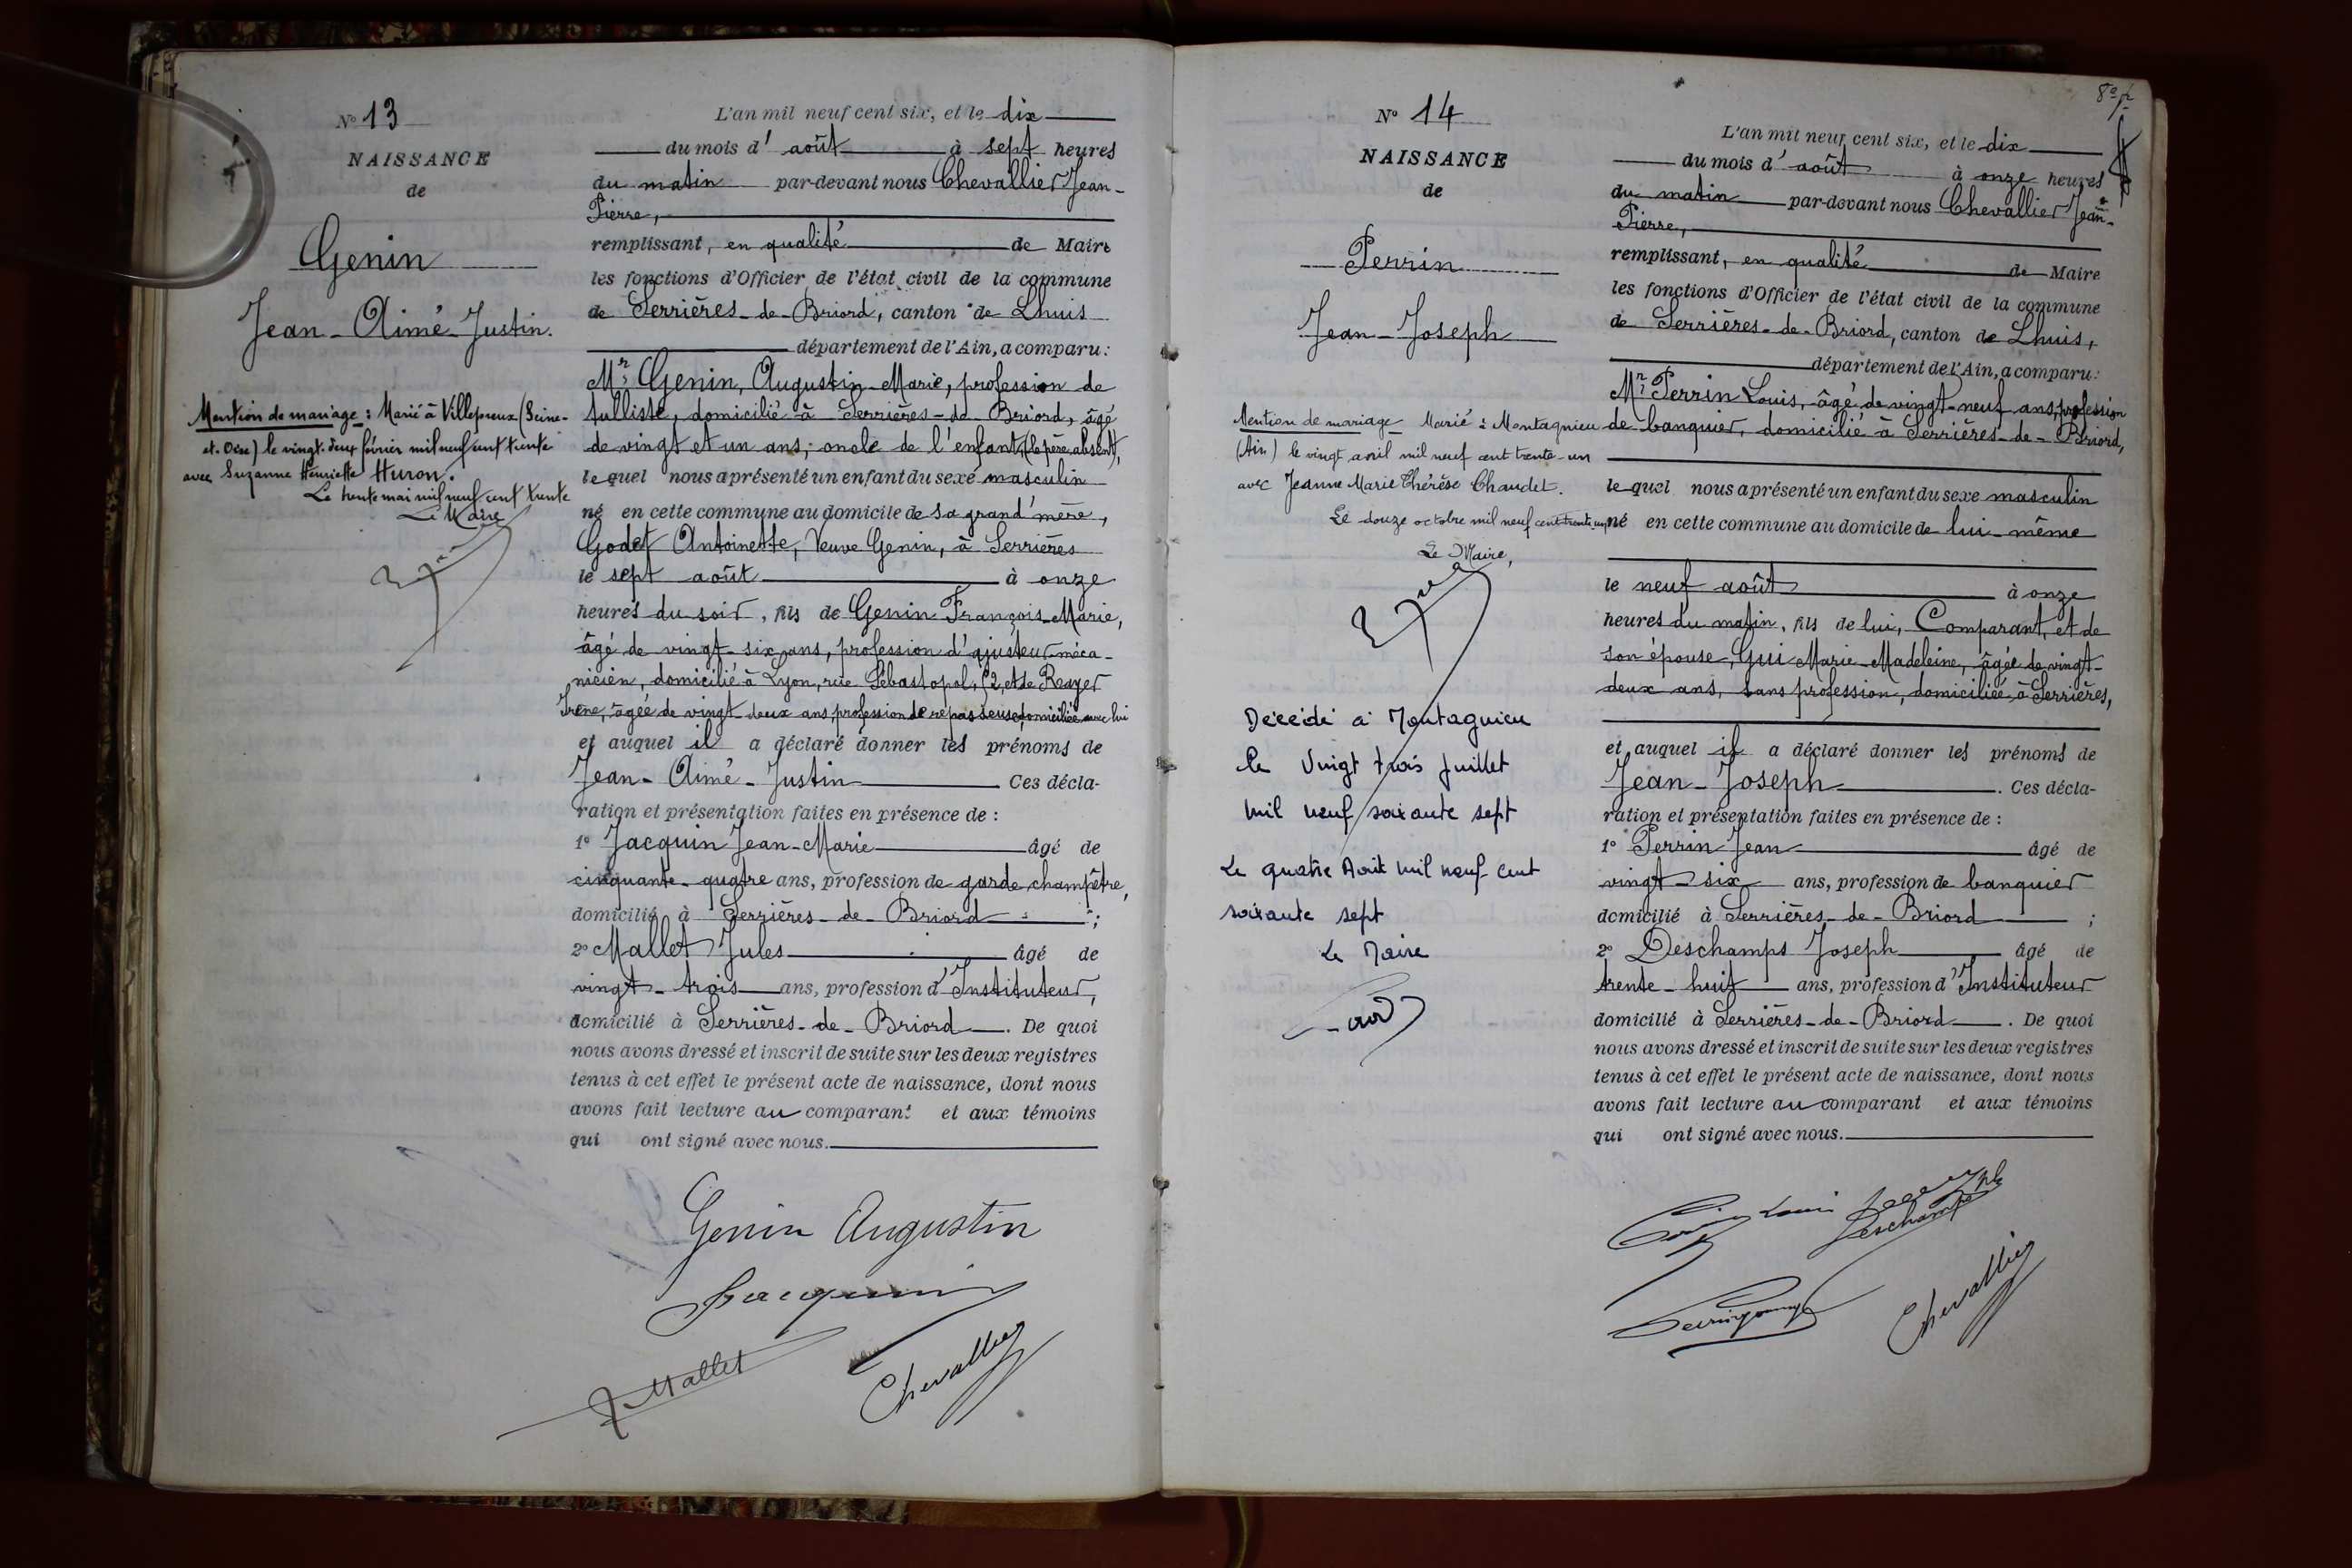 N° 13
NAISSANCE
de
Genin
Jean-Aimé-Justin.
Mention de mariage : Marié à Villepreux (Seine-
et-Oise) le vingt-deux février mil neuf cent trente
avec Suzanne Henriette Huron.
Le trente mai mil neuf cent trente
Le Maire
L'an mil neuf cent six, et le dix
du mois d'août à sept heures
du matin par-devant nous Chevallier Jean-
Pierre,
remplissant, en qualité de Maire
les fonctions d'Officier de l'état civil de la commune
de Serrières-de-Briord, canton de Lhuis
département de l'Ain, a comparu :
Mr Genin, Augustin-Marie, profession de
tulliste, domicilié à Serrières-de Briord, âgé
de vingt et un ans, oncle de l'enfant, (le père absent,
lequel nous a présenté un enfant du sexe masculin
né en cette commune au domicile de sa grand'mère,
Godet Antoinette, Veuve Genin, à Serrières
le sept août à onze
heures du soir, fils de Genin François-Marie,
âgé de vingt-six ans, profession d'ajusteur-méca-
nicien, domicilié à Lyon, rue Sébastopol, 12, et de
Irène, âgée de vingt-deux ans, profession de repasseuse, domiciliée avec lui
et auquel il a déclaré donner les prénoms de
Jean-Aimé-Justin Ces décla-
ration et présentation faites en présence de :
1° Jacquin Jean-Marie âgé de
cinquante-quatre ans, profession de garde champêtre,
domicilié à Serrières-de-Briord ;
2° Mallet Jules âgé de
vingt-trois ans, profession d'Instituteur,
domicilié à Serrières-de-Briord. De quoi
nous avons dressé et inscrit de suite sur les deux registres
tenus à cet effet le présent acte de naissance, dont nous
avons fait lecture au comparant et aux témoins
qui ont signé avec nous.
Genin Augustin
Jacquin
J Mallet
Chevallier
N° 14
NAISSANCE
de
Perrin
Jean-Joseph
Mention de mariage Marié à Montagnieu
(Ain) le vingt avril mil neuf cent trente-un
avec Jeanne Marie Thérèse Chaudet.
Le douze octobre mil neuf cent trente-un
Le Maire,
Décédé à Montagnieu
le Vingt trois Juillet
mil neuf soixante sept
Le quatre Août mil neuf cent
soixante sept
Le Maire
L'an mil neuf cent six, et le dix
du mois d'août à onze heures
du matin par-devant nous Chevallier Jean-
Pierre,
remplissant, en qualité de Maire
les fonctions d'Officier de l'état civil de la commune
de Serrières-de-Briord, canton de Lhuis,
département de l'Ain, a comparu :
Mr Perrin Louis, âgé de vingt-neuf ans, profession
de banquier, domicilié à Serrières-de-Briord,
lequel nous a présenté un enfant du sexe masculin
né en cette commune au domicile de lui-même
le neuf août à onze
heures du matin, fils de lui, Comparant, et de
son épouse, Gui Marie-Madeleine, âgée de vingt-
deux ans, sans profession, domiciliée à Serrières,
et auquel il a déclaré donner les prénoms de
Jean-Joseph. Ces décla-
ration et présentation faites en présence de :
1° Perrin Jean âgé de
vingt-six ans, profession de banquier
domicilié à Serrières-de-Briord ;
2° Deschamps Joseph âgé de
trente-huit ans, profession d'Instituteur
domicilié à Serrières-de-Briord. De quoi
nous avons dressé et inscrit de suite sur les deux registres
tenus à cet effet le présent acte de naissance, dont nous
avons fait lecture au comparant et aux témoins
qui ont signé avec nous.
Perrin Louis
Deschamps
Chevallier